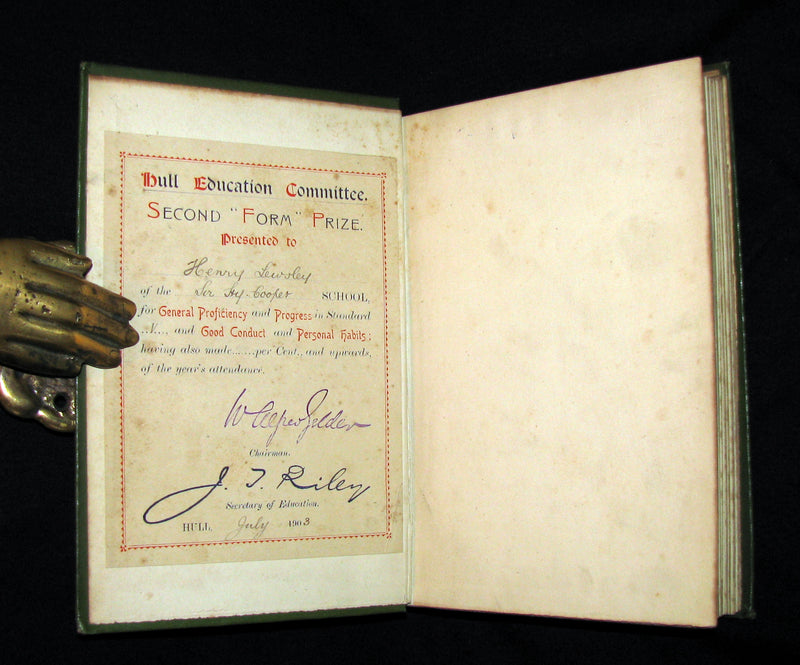 Hull Education Committee.
SECOND "FORM" PRIZE.
Presented to
Henry Lewsley
of the Sir Hy. Cooper SCHOOL,
for General Proficiency and Progress in Standard
..V..., and Good Conduct and Personal Habits;
having also made......per Cent., and upwards,
of the year's attendance.
W Alfred Gelder
Chairman.
J. T. Riley
Secretary of Education.
HULL, July 1903